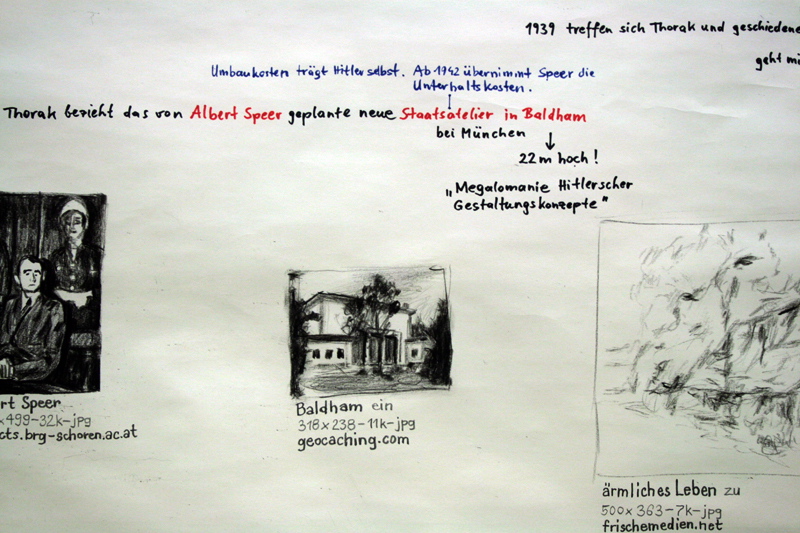 1939 treffen sich Thorak und geschiedene
geht mi
Umbaukosten trägt Hitler selbst. Ab 1942 übernimmt Speer die
Unterhaltskosten.
Thorak bezieht das von Albert Speer geplante neue Staatsatelier in Baldham
bei München
22 m hoch!
„Megalomanie Hitlerscher
Gestaltungskonzepte"
rt Speer
x499-32k-jpg
cts.brg-schoren.ac.at
Baldham ein
318x238-11k-jpg
geocaching.com
ärmliches Leben zu
500x363-7k-jpg
frischemedien.net